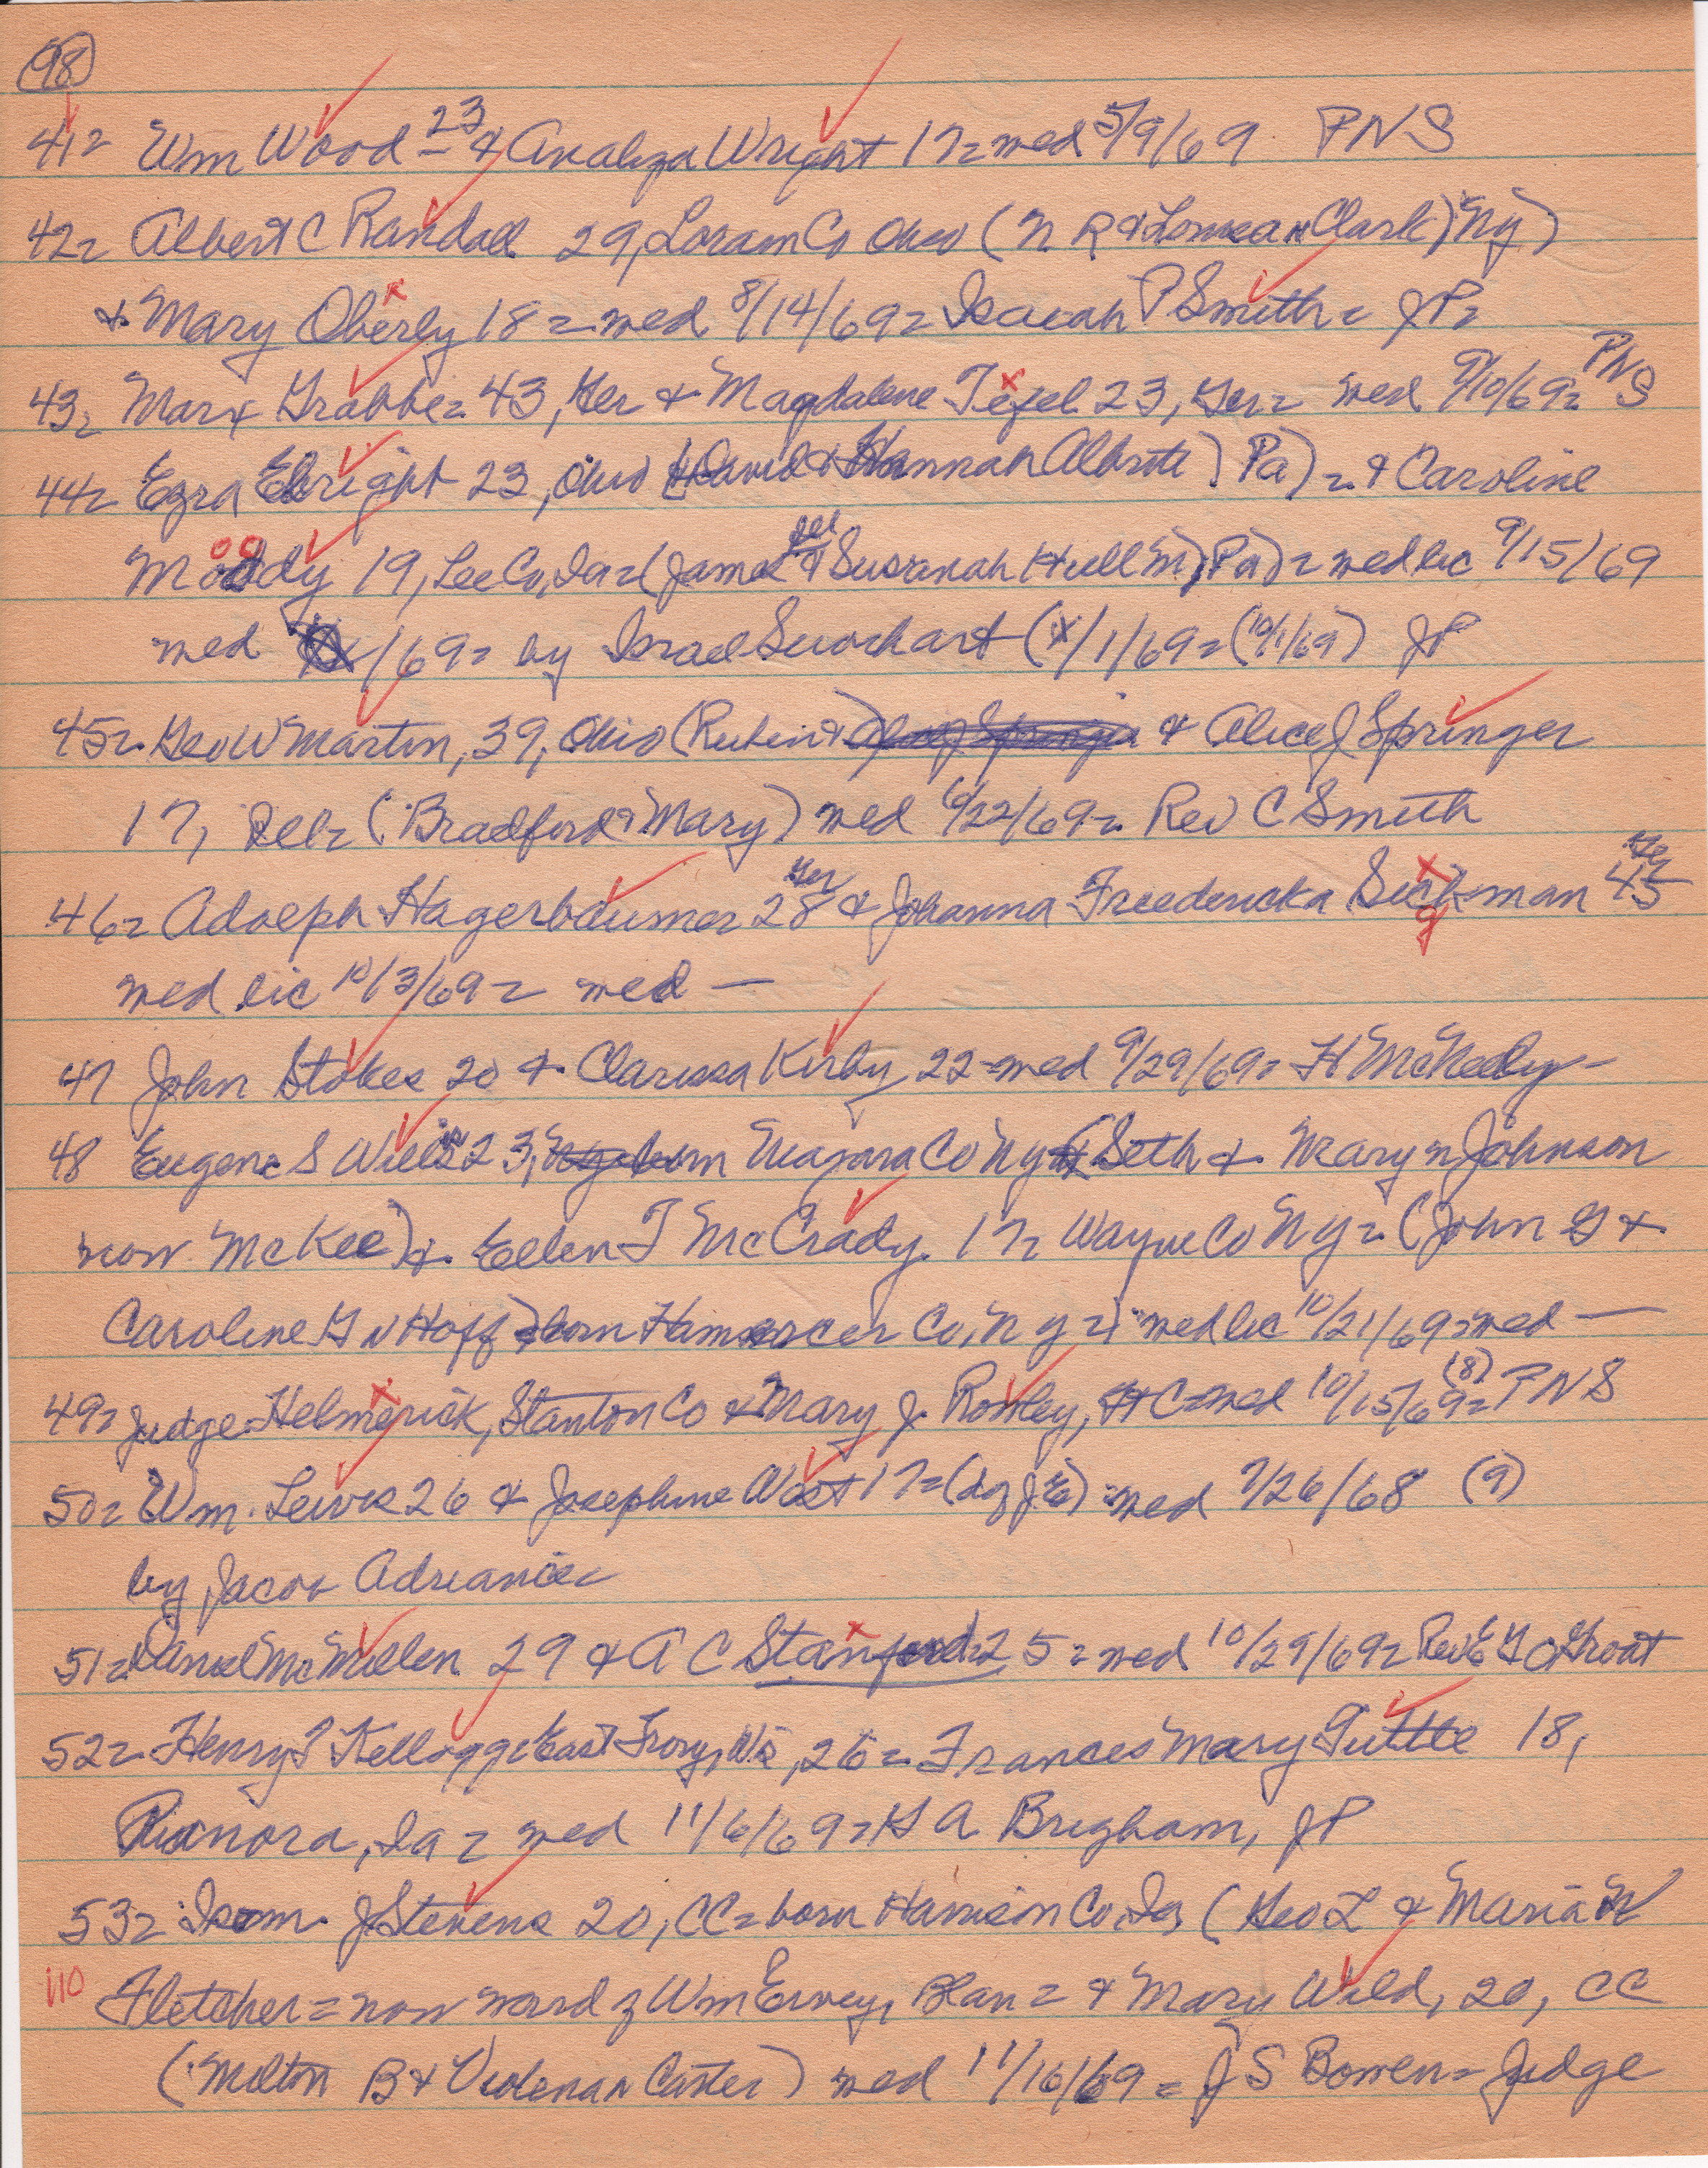 98
41= Wm Wood - 23 & Analiza Wright 17= med 5/9/69 PNS
42= Albert C Randall 29, Loram Co Ohio (N R & Louisa n Clark) Ny)
& Mary Oberly 18 = med 8/14/69= Isaiah P Smith = JP=
43= Marx Grabbe= 43, Ger & Magdalene Tefel 23, Ger= med 9/10/69= PNS
44= Ezra Ebright 23, Ohio (David & Hannah Albrite) Pa) = & Caroline
Moody 19, Lee Co, Ia= (James & Susanah Hull M, Pa) = med lic 9/15/69
med /69= by Israel Swihart (x/1/69= (10/1/69) JP
45= Geo W Martin, 39, Ohio (Rubin &) Alice J Springer & Alice J Springer
17, Del= (Bradford & Mary) med 9/22/69= Rev C Smith
46= Adolph Hagerbaumer 28 Ger & Johanna Freedericka Sickman 45 Ger
med lic 10/3/69= med —
47 John Stokes 20 & Clarissa Kirby 22 = med 9/29/69= H McNeely -
48 Eugene S Wills 23, Niagara Co Ny (Seth & Mary n Johnson
now McKee) & Ellen T McCrady 17= Wayne Co Ny = (John G &
Caroline G v Hoff born Co, Ny =) med lic 10/21/69= med —
49= Judge Helmerick, Stanton Co & Mary J. Rowley, C = med 10/15/69= (8) PNS
50= Wm. Lewis 26 & Josephine West 17= (dg J E) = med 7/26/68 (9)
by Jacob Adriance
51= Daniel McMullen 29 & A C Stanford= 25 = med 10/29/69= Rev E G O Groat
52= Henry P Kellogg= East Troy, Wis, 26 = Frances Mary Tuttle 18,
Panora, Ia = med 11/6/69= G A Brigham, JP
53= Isom J Stevens 20, CC = born Harrison Co, Ia (Geo L & Maria N
110 Fletcher = now ward of Wm Ervey, Blan = & Mary Wild, 20, CC
(Milton B & Violena n Carter) med 11/16/69 = J S Bowen = Judge